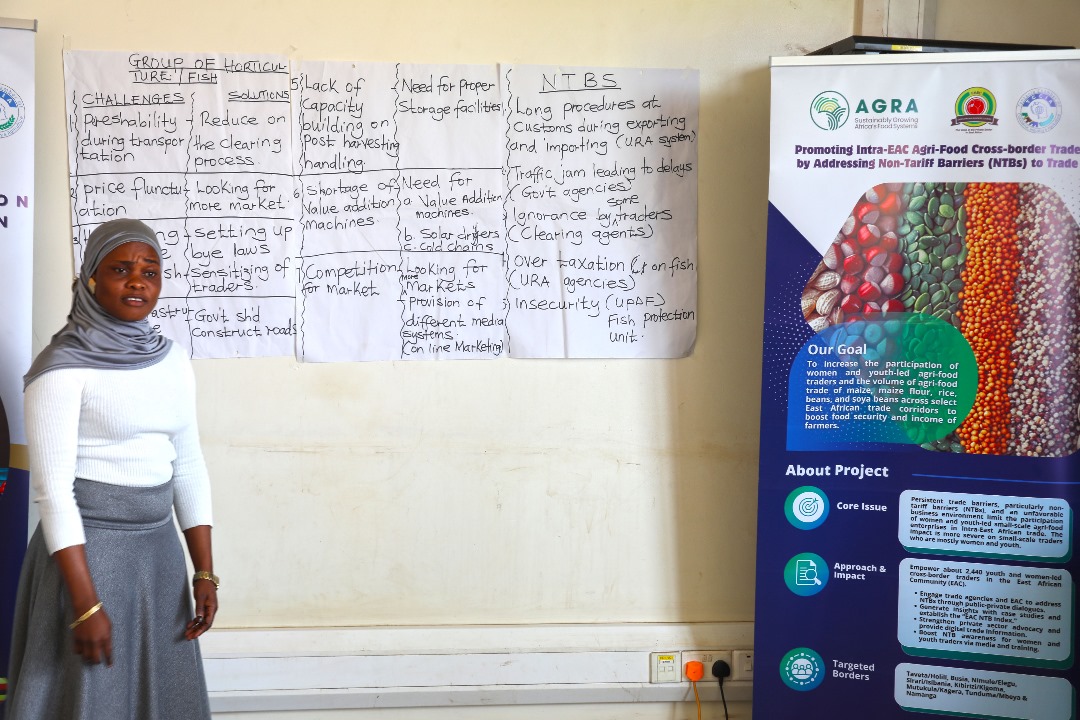 GROUP OF HORTICUL-
TURE / FISH
CHALLENGES
preshability
during transpor
tation
price flunctu-
ation
SOLUTIONS
Reduce on
the clearing
process.
Looking for
more market.
setting up
bye laws
Sensitizing of
traders.
Govt shd
construct roads
5 Lack of
capacity
building on
Post harvesting
handling.
6 Shortage of
Value addition
machines.
Competition
for market
Need for Proper
Storage facilities
Need for
a. Value Addition
machines.
b. Solar driers
c. cold chains
Looking for
more
Markets
provision of
different media
systems.
(on line Marketing)
NTBS
Long procedures at
Customs during exporting
and Importing (URA system)
Traffic jam leading to delays
(Govt agencies)
some
Ignorance by traders
(Clearing agents)
Over taxation on fish
(URA agencies)
Insecurity (UPDF)
Fish protection
unit.
AGRA
Sustainably Growing
Africa's Food Systems
Promoting Intra-EAC Agri-Food Cross-border Trade
by Addressing Non-Tariff Barriers (NTBs) to Trade
Our Goal
To increase the participation of
women and youth-led agri-food
traders and the volume of agri-food
trade of maize, maize flour, rice,
beans, and soya beans across select
East African trade corridors to
boost food security and income of
farmers.
About Project
Core Issue
Persistent trade barriers, particularly non-
tariff barriers (NTBs), and an unfavorable
business environment limit the participation
of women and youth-led small-scale agri-food
enterprises in Intra-East African trade. The
impact is more severe on small-scale traders
who are mostly women and youth.
Approach &
Impact
Empower about 2,440 youth and women-led
cross-border traders in the East African
Community (EAC).
• Engage trade agencies and EAC to address
NTBs through public-private dialogues.
• Generate insights with case studies and
establish the "EAC NTB Index."
• Strengthen private sector advocacy and
provide digital trade information.
• Boost NTB awareness for women and
youth traders via media and training.
Targeted
Borders
Taveta/Holili, Busia, Nimule/Elegu,
Sirari/Isibania, Kibirizi/Kigoma,
Mutukula/Kagera, Tunduma/Mbeya &
Namanga